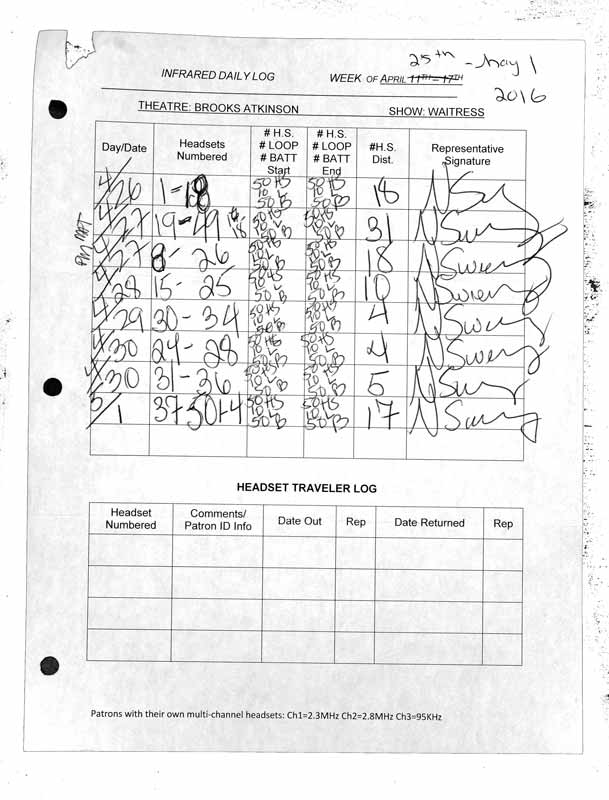 25th - May 1
INFRARED DAILY LOG WEEK OF APRIL 11TH – 17TH
2016
THEATRE: BROOKS ATKINSON SHOW: WAITRESS
Day/Date Headsets Numbered # H.S. # LOOP # BATT Start # H.S. # LOOP # BATT End #H.S. Dist. Representative Signature
4/26 1-18 50 HS 10 L 50 B 50 HS 10 L 50 B 18
4/27 19-49 50 HS 10 L 50 B 50 HS 10 L 50 B 31
4/27 8-26 50 HS 10 L 50 B 50 HS 10 L 50 B 18
4/28 15-25 50 HS 10 L 50 B 50 HS 10 L 50 B 10
4/29 30-34 50 HS 10 L 50 B 50 HS 10 L 50 B 4
4/30 24-28 50 HS 10 L 50 B 50 HS 10 L 50 B 4
4/30 31-36 50 HS 10 L 50 B 50 HS 10 L 50 B 5
5/1 37-50 1-4 50 HS 10 L 50 B 50 HS 10 L 50 B 17
HEADSET TRAVELER LOG
Headset Numbered Comments/ Patron ID Info Date Out Rep Date Returned Rep
Patrons with their own multi-channel headsets: Ch1=2.3MHz Ch2=2.8MHz Ch3=95KHz